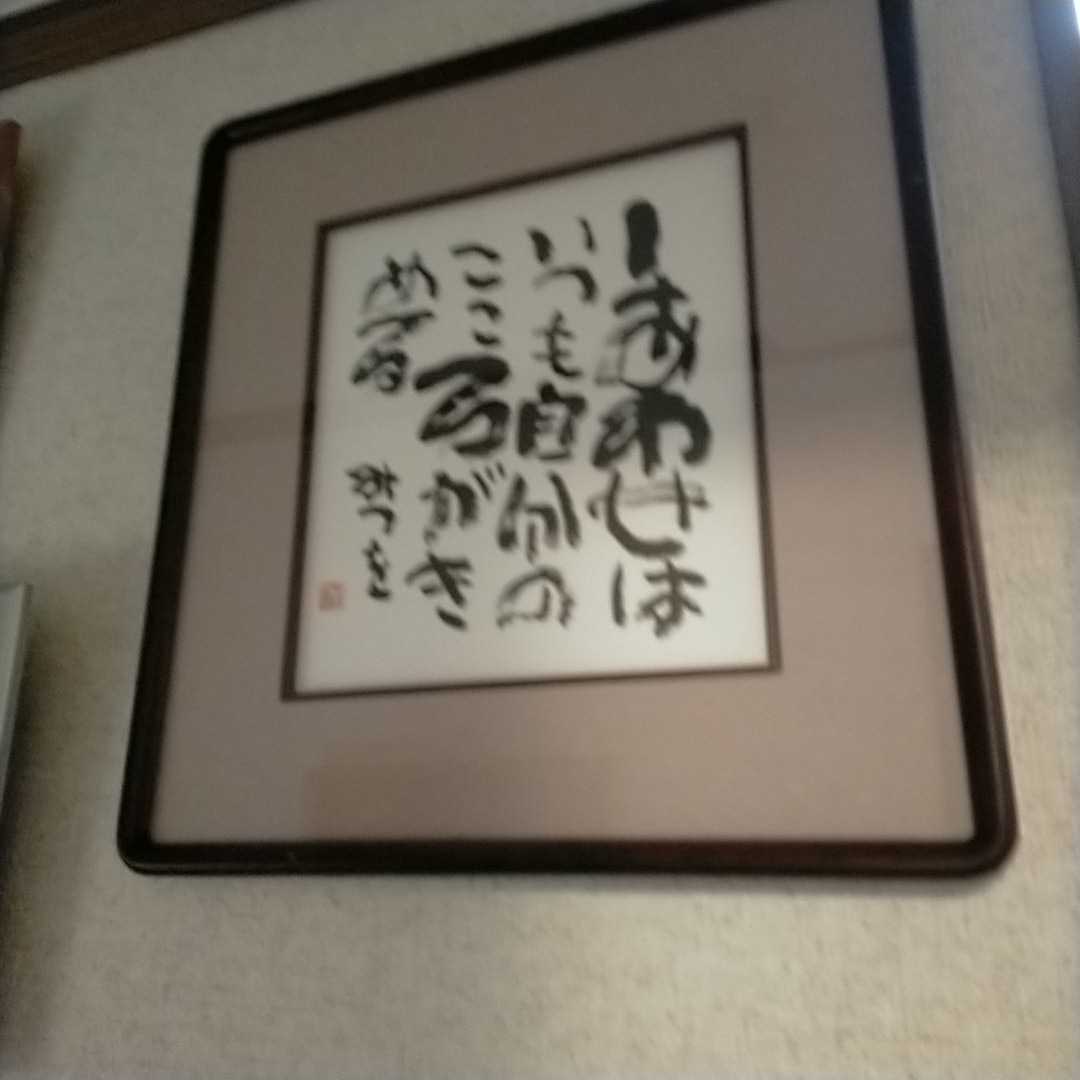 しあわせは
いつも自分の
こころがき
めてる
みつを